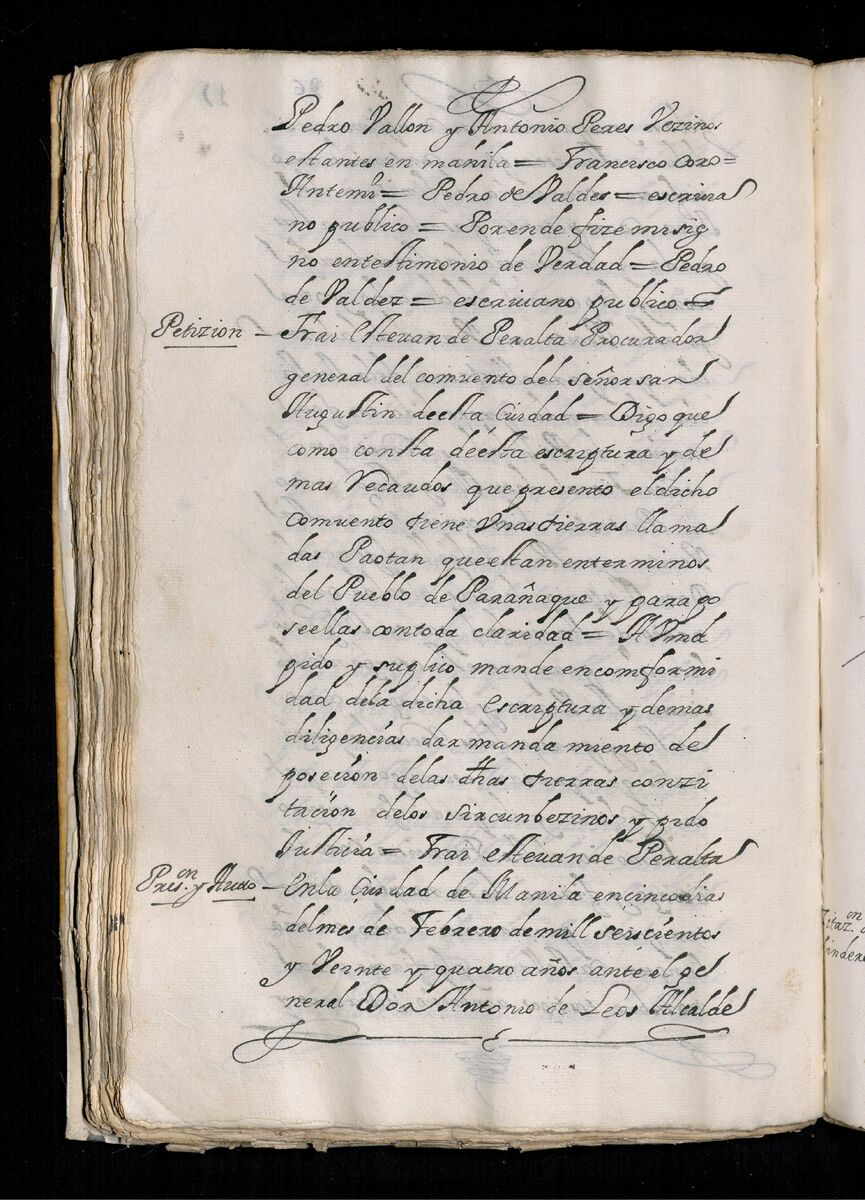 Pedro Vallon y Antonio Peres Vezinos
estantes en manila = Francisco coro =
Antemi = Pedro de Valdes = escriua
no publico = Porende fize mi sig
no entestimonio de Verdad = Pedro
de Valdez = escriuano publico =
Petizion – Frai Esteuan de Peralta Procurador
general del comuento del señor san
Augustin decsta Ciudad = Digo que
como consta decsta escriptura y de
mas Recaudos que presento el dicho
comuento tiene Vnas tierras llama
das Paotan que estan enterminos
del Pueblo de Parañaque y para go
seellas contoda claridad = A Vmd
pido y suplico mande encomformi
dad dela dicha Escriptura y demas
diligencias dar manda miento de
posecion delas dhas tierras conzi
tacion delos sircunbezinos y pido
Justicia = Frai esteuan de Peralta
Pres.on y Auto – Enla Ciudad de Manila encinco dias
del mes de Febrero de mill seiscientos
y Veinte y quatro años ante el ge
neral Don Antonio de Leos Alcalde
Zitaz.on